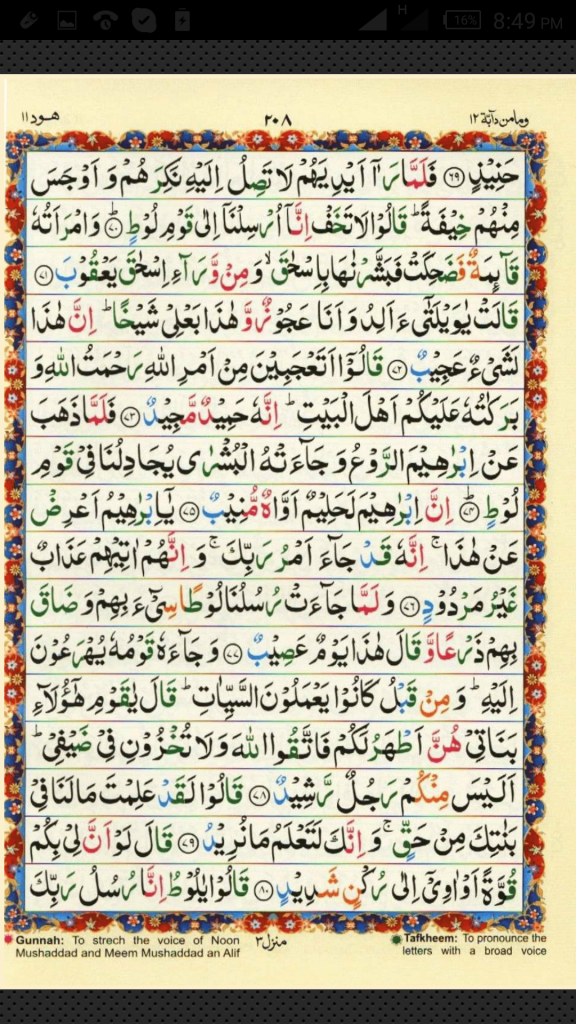 H 16% 8:49 PM
وما من دآبة ١٢ ٢٠٨ هود ١١
حَنِيْذٍ ﴿۶۹﴾ فَلَمَّا رَاٰۤ اَيْدِيَهُمْ لَا تَصِلُ اِلَيْهِ نَكِرَهُمْ وَ اَوْجَسَ
مِنْهُمْ خِيْفَةً ؕ قَالُوْا لَا تَخَفْ اِنَّاۤ اُرْسِلْنَاۤ اِلٰى قَوْمِ لُوْطٍ ﴿۷۰﴾ وَ امْرَاَتُهٗ
قَآىِٕمَةٌ فَضَحِكَتْ فَبَشَّرْنٰهَا بِاِسْحٰقَ ۙ وَ مِنْ وَّرَآءِ اِسْحٰقَ يَعْقُوْبَ ﴿۷۱﴾
قَالَتْ يٰوَيْلَتٰۤى ءَاَلِدُ وَ اَنَا عَجُوْزٌ وَّ هٰذَا بَعْلِيْ شَيْخًا ؕ اِنَّ هٰذَا
لَشَيْءٌ عَجِيْبٌ ﴿۷۲﴾ قَالُوْۤا اَتَعْجَبِيْنَ مِنْ اَمْرِ اللّٰهِ رَحْمَتُ اللّٰهِ وَ
بَرَكٰتُهٗ عَلَيْكُمْ اَهْلَ الْبَيْتِ ؕ اِنَّهٗ حَمِيْدٌ مَّجِيْدٌ ﴿۷۳﴾ فَلَمَّا ذَهَبَ
عَنْ اِبْرٰهِيْمَ الرَّوْعُ وَ جَآءَتْهُ الْبُشْرٰى يُجَادِلُنَا فِيْ قَوْمِ
لُوْطٍ ﴿۷۴﴾ اِنَّ اِبْرٰهِيْمَ لَحَلِيْمٌ اَوَّاهٌ مُّنِيْبٌ ﴿۷۵﴾ يٰۤاِبْرٰهِيْمُ اَعْرِضْ
عَنْ هٰذَا ۚ اِنَّهٗ قَدْ جَآءَ اَمْرُ رَبِّكَ ۚ وَ اِنَّهُمْ اٰتِيْهِمْ عَذَابٌ
غَيْرُ مَرْدُوْدٍ ﴿۷۶﴾ وَ لَمَّا جَآءَتْ رُسُلُنَا لُوْطًا سِيْٓءَ بِهِمْ وَ ضَاقَ
بِهِمْ ذَرْعًا وَّ قَالَ هٰذَا يَوْمٌ عَصِيْبٌ ﴿۷۷﴾ وَ جَآءَهٗ قَوْمُهٗ يُهْرَعُوْنَ
اِلَيْهِ ؕ وَ مِنْ قَبْلُ كَانُوْا يَعْمَلُوْنَ السَّيِّاٰتِ ؕ قَالَ يٰقَوْمِ هٰۤؤُلَآءِ
بَنَاتِيْ هُنَّ اَطْهَرُ لَكُمْ فَاتَّقُوا اللّٰهَ وَ لَا تُخْزُوْنِ فِيْ ضَيْفِيْ ؕ
اَلَيْسَ مِنْكُمْ رَجُلٌ رَّشِيْدٌ ﴿۷۸﴾ قَالُوْا لَقَدْ عَلِمْتَ مَا لَنَا فِيْ
بَنٰتِكَ مِنْ حَقٍّ ۚ وَ اِنَّكَ لَتَعْلَمُ مَا نُرِيْدُ ﴿۷۹﴾ قَالَ لَوْ اَنَّ لِيْ بِكُمْ
قُوَّةً اَوْ اٰوِيْۤ اِلٰى رُكْنٍ شَدِيْدٍ ﴿۸۰﴾ قَالُوْا يٰلُوْطُ اِنَّا رُسُلُ رَبِّكَ
Gunnah: To strech the voice of Noon
Mushaddad and Meem Mushaddad an Alif
منزل ٣
Tafkheem: To pronounce the
letters with a broad voice